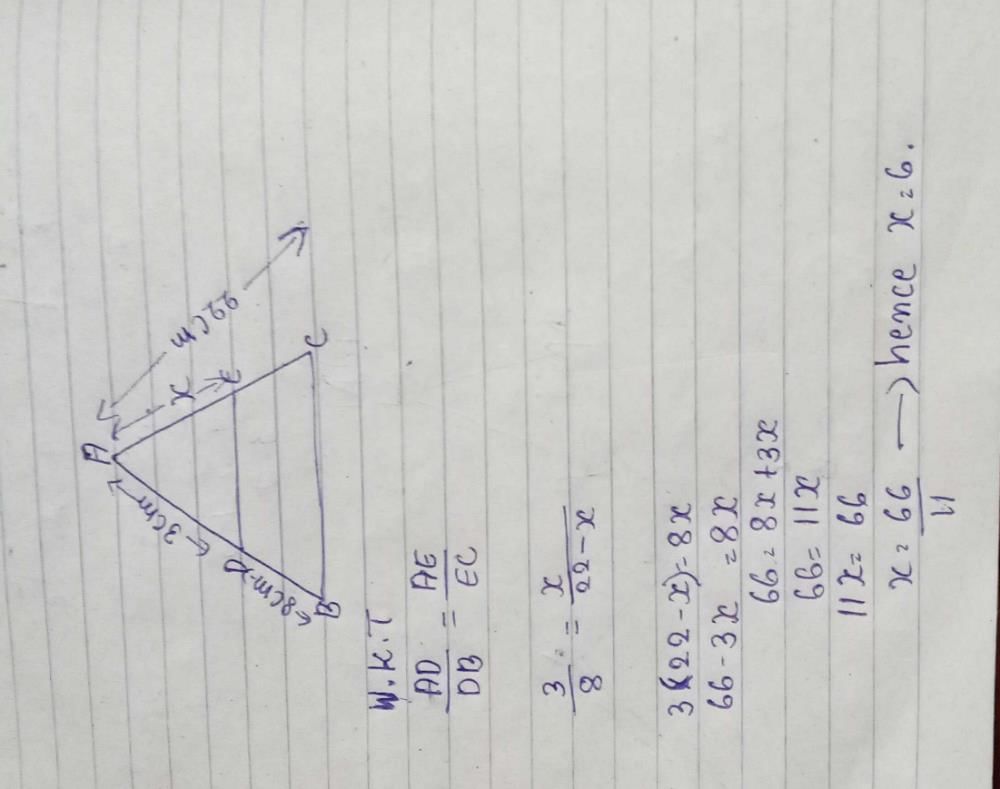 A
3cm
x
22cm
D
E
8cm
B
C
W.K.T
AD/DB = AE/EC
3/8 = x/22-x
3(22-x)=8x
66-3x =8x
66=8x+3x
66=11x
11x=66
x=66/11 → hence x=6.